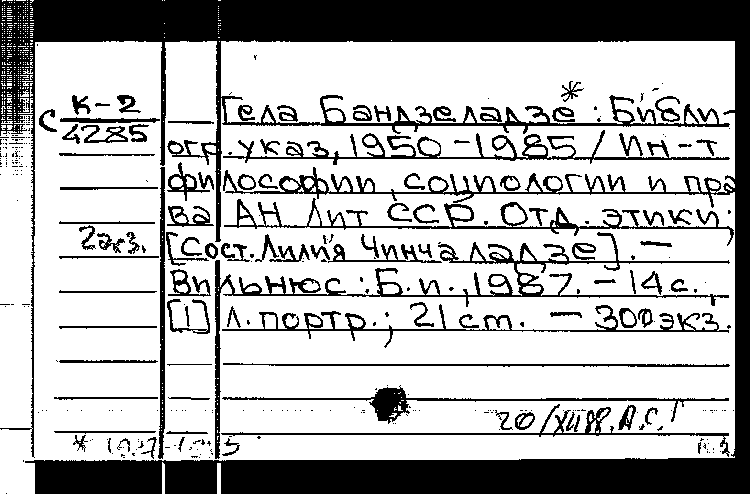 К-2
С 4285
Гела Бандзеладзе* : Библи-
огр. указ, 1950-1985 / Ин-т
философии, социологии и пра
ва АН Лит ССР. Отд. этики;
2 экз. [Сост. Лилия Чинчаладзе]. —
Вильнюс : Б.и., 1987. - 14 с.,
[1] л. портр.; 21 cm. — 300 экз.
20/XII 88. А.С.Г